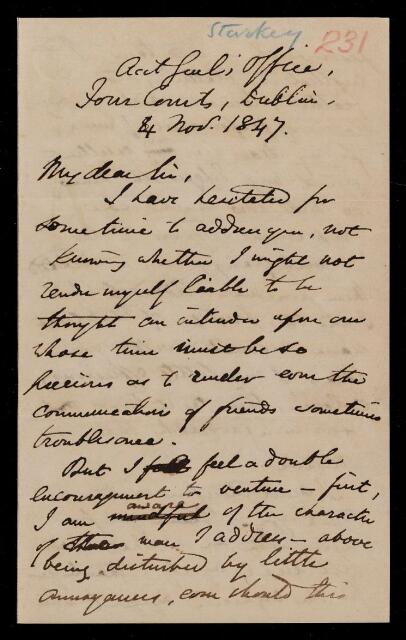 Starkey 231
Acct Genl's Office,
Four Courts, Dublin.
4 Nov. 1847.
My dear Sir,
I have hesitated for
sometime to address you, not
knowing whether I might not
render myself liable to be
thought an intruder upon one
whose time must be so
precious as to render even the
communications of friends sometimes
troublesome.
But I feel a double
encouragement to venture – first,
I am mindful aware of the character
of the man I address – above
being disturbed by little
annoyances, even should this